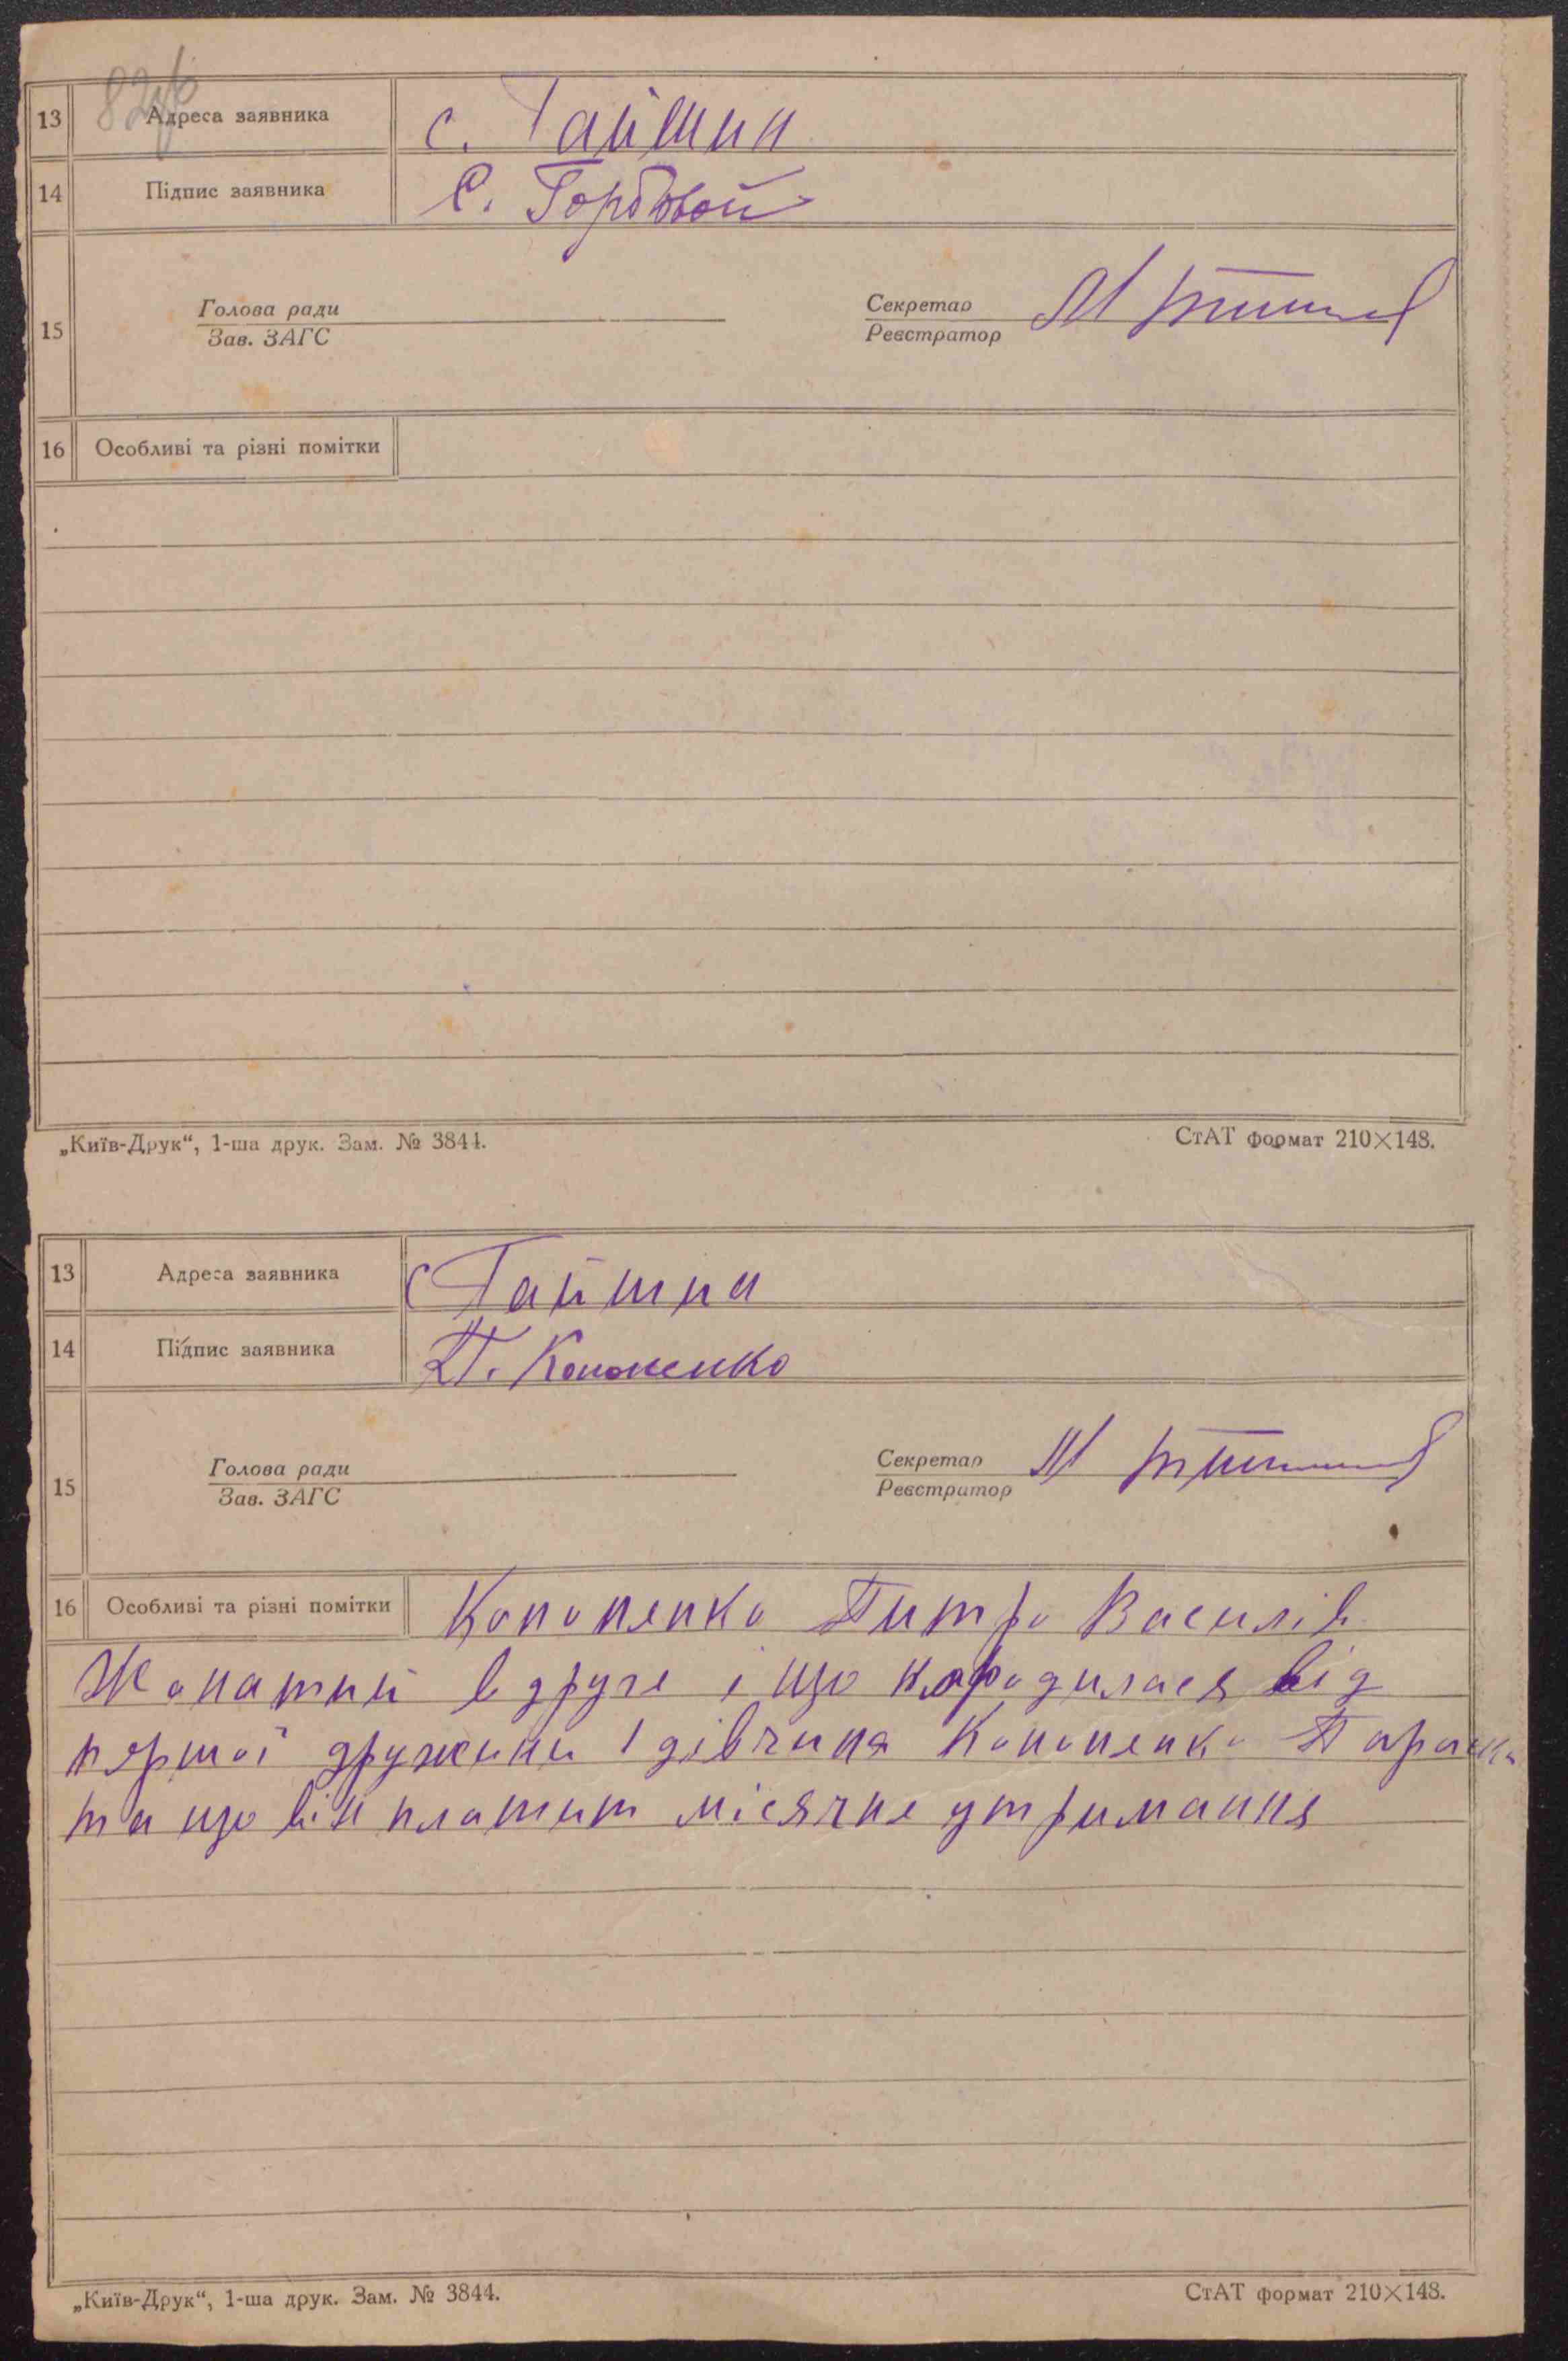 13 Адреса заявника с. Гайшин
14 Підпис заявника С. Горбовой
15 Голова ради Секретар М
Зав. ЗАГС Реєстратор
16 Особливі та різні помітки
„Київ-Друк“, 1-ша друк. Зам. № 3844. СтАТ формат 210×148.
13 Адреса заявника с Гайшин
14 Підпис заявника П. Кононенко
15 Голова ради Секретар М
Зав. ЗАГС Реєстратор
16 Особливі та різні помітки Кононенко Питро Василів
Жонатий в друге і що народилася від
першої дружини 1 дівчина Кононенко
та що він платит місячне утримання
„Київ-Друк“, 1-ша друк. Зам. № 3844. СтАТ формат 210×148.